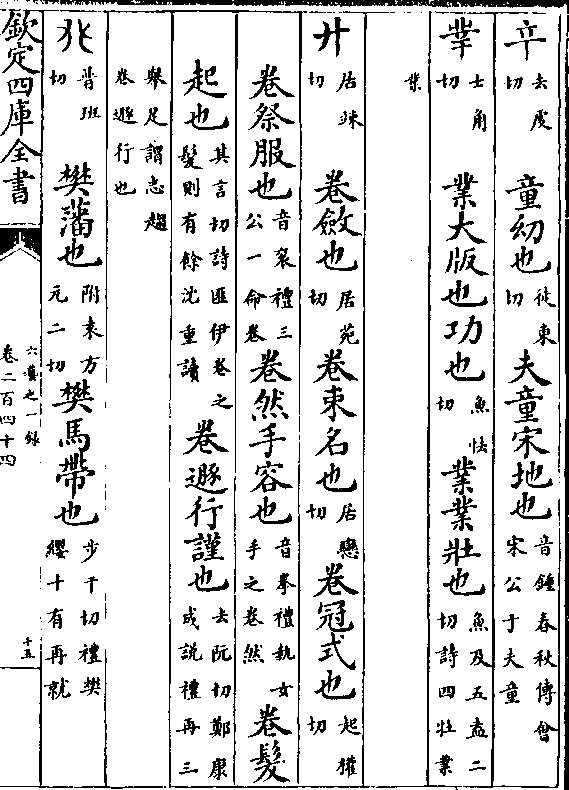 䇂去虔切 童幼也徒東切 夫童宋地也音鍾春秋傳會宋公于夫童
丵士角切 業大版也功也魚怯切 業業壯也魚及五盍二切詩四牡業
業
廾居竦切 卷斂也居苑切 卷束名也居戀切 卷冠式也起權切
卷祭服也音衮禮三公一命卷 卷然手容也音拳禮執女手之卷然 卷髮
起也其言切詩匪伊卷之髮則有餘沈重讀 卷遯行謹也去阮切鄭康成説禮再三
舉足謂志趨卷遯行也
𠬜普班切 樊藩也附袁方元二切 樊馬帶也步干切禮樊纓十有再就
欽定四庫全書
六藝之一録
卷二百四十四
十五